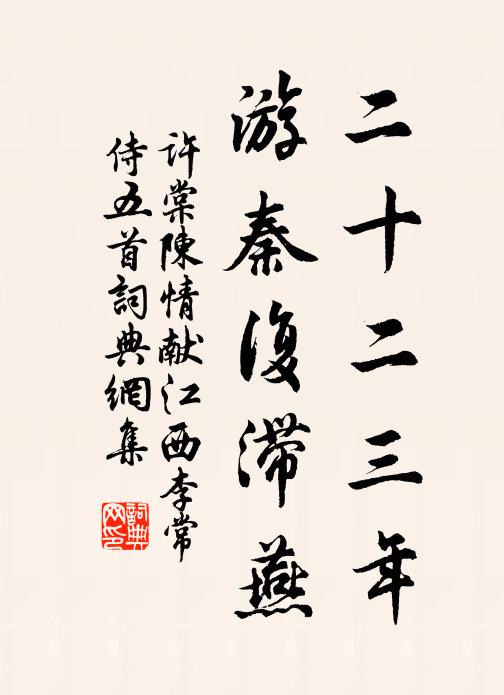 二十二三年
游秦復滞燕
许棠陳情献江西李常
侍五首詞典網集
詞典
网印